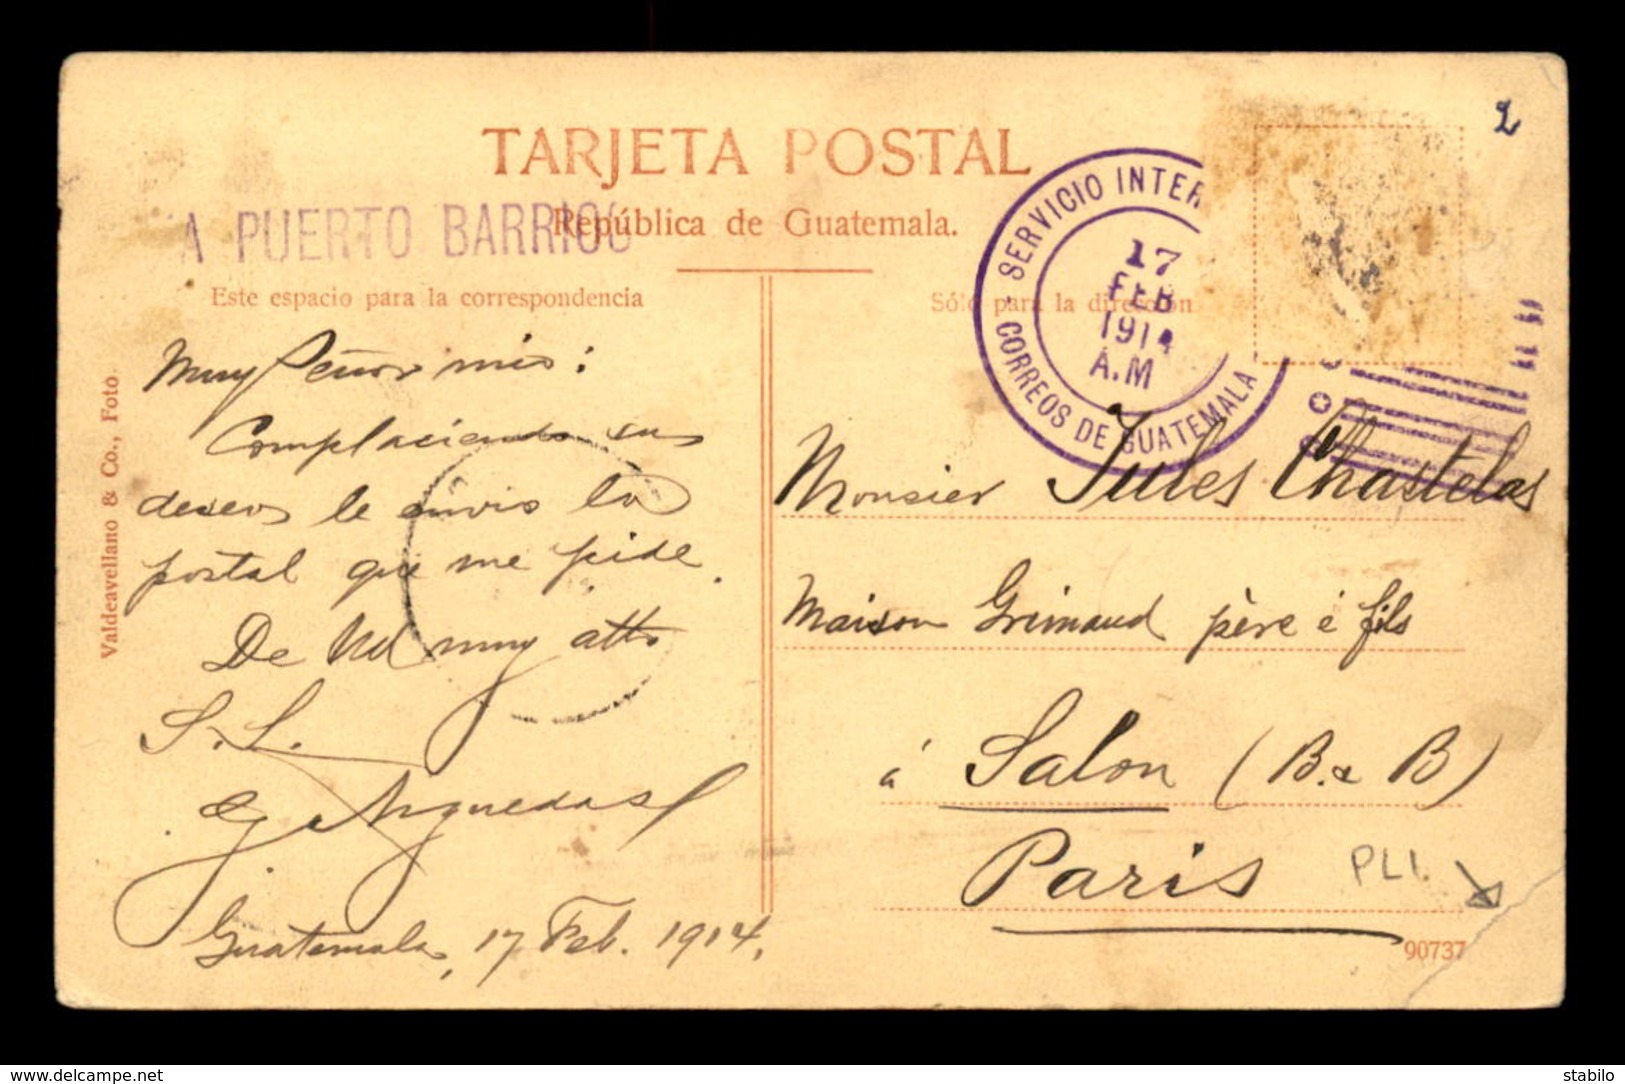 2
TARJETA POSTAL
A PUERTO BARRIOS
República de Guatemala.
SERVICIO INTER
17
FEB
1914
A.M
CORREOS DE GUATEMALA
Este espacio para la correspondencia
Sólo para la dirección
Valdeavellano & Co., Foto.
Muy Señor mio:
Complaciendo sus
deseos le envio la
postal que me pide.
De Ud muy atto
S.S.
G. Arguedas
Guatemala, 17 Feb. 1914.
Monsier Jules Chastelas
Maison Grimaud père é fils
á Salon (B. & B)
Paris
PLI.
90737
www.delcampe.net
stabilo